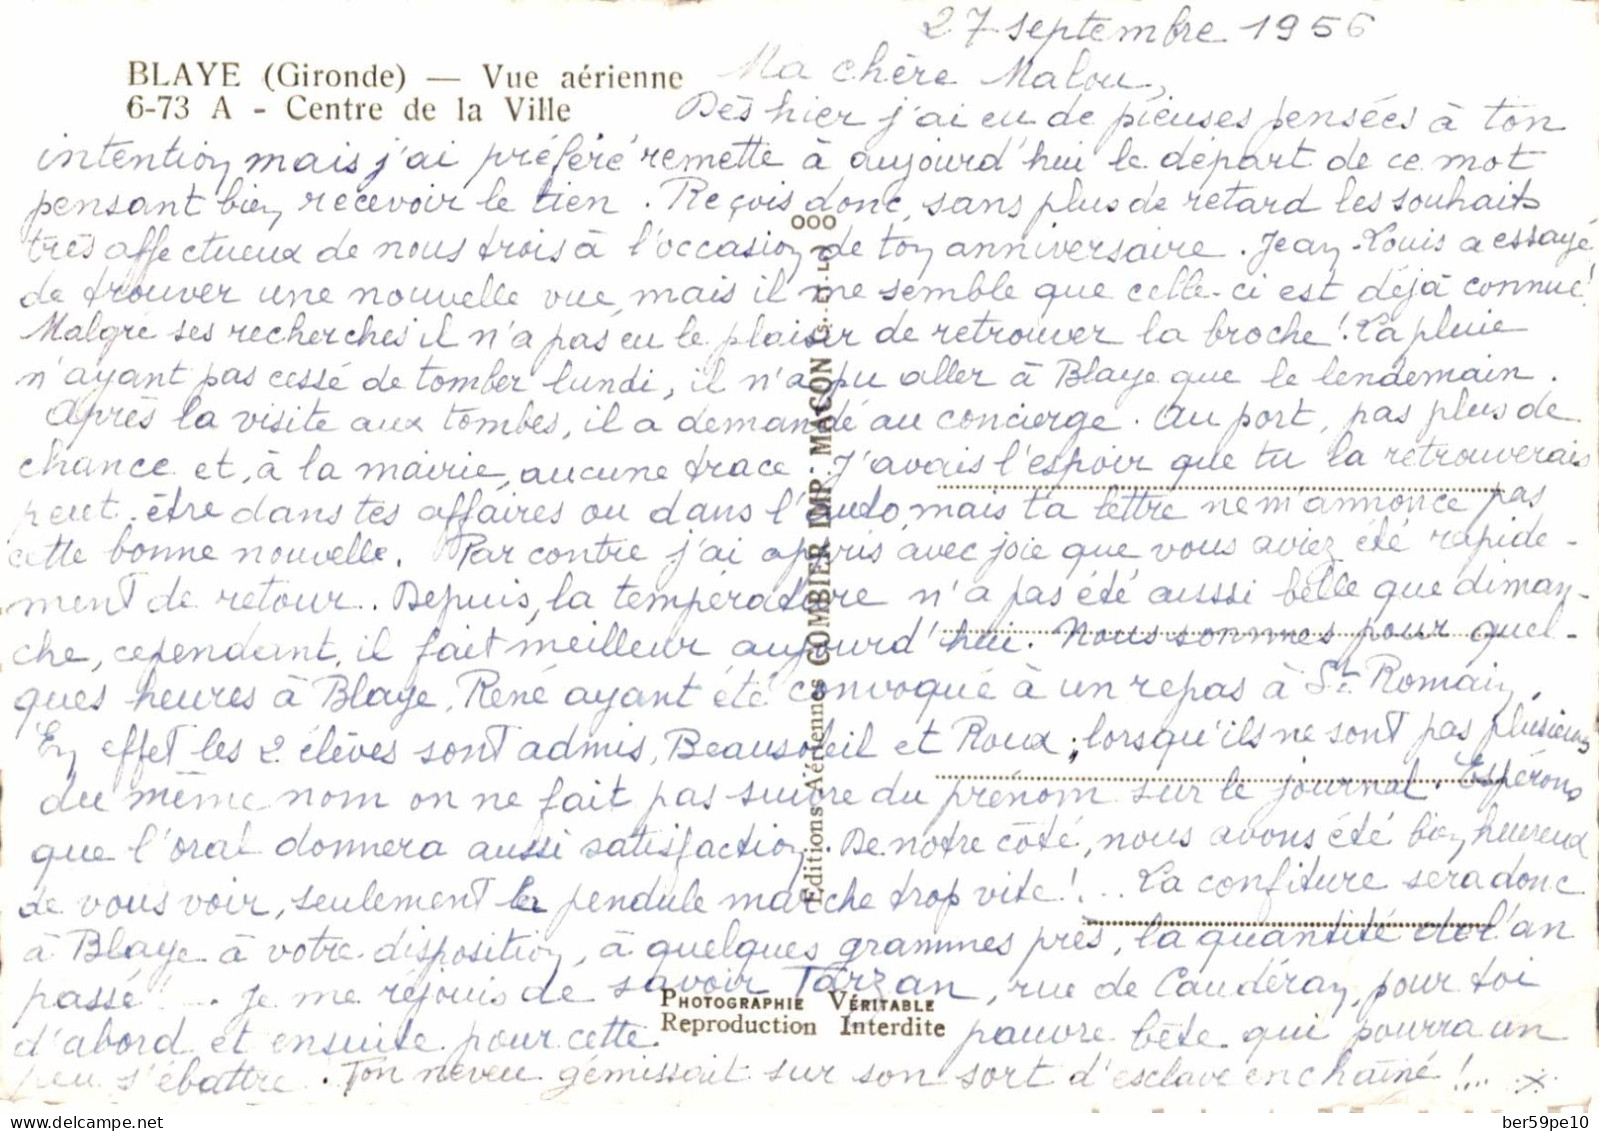 27 septembre 1956
BLAYE (Gironde) — Vue aérienne
6-73 A - Centre de la Ville
Ma chère Malou,
Dès hier j'ai eu de pieuses pensées à ton
intention mais j'ai préféré remettre à aujourd'hui le départ de ce mot
pensant bien recevoir le tien. Reçois donc, sans plus de retard les souhaits
très affectueux de nous trois à l'occasion de ton anniversaire. Jean-Louis a essayé
de trouver une nouvelle vue mais il me semble que celle-ci est déjà connue!
Malgré ses recherches il n'a pas eu le plaisir de retrouver la broche! La pluie
n'ayant pas cessé de tomber lundi, il n'a pu aller à Blaye que le lendemain.
Après la visite aux tombes, il a demandé au concierge. Au port, pas plus de
chance et, à la mairie, aucune trace. J'avais l'espoir que tu la retrouverais
peut-être dans tes affaires ou dans l'auto, mais ta lettre ne m'annonce pas
cette bonne nouvelle. Par contre j'ai appris avec joie que vous aviez été rapide-
ment de retour. Depuis, la température n'a pas été aussi belle que diman-
che, cependant, il fait meilleur aujourd'hui. Nous sommes pour quel-
ques heures à Blaye, René ayant été convoqué à un repas à St. Romain.
En effet les 2 élèves sont admis, Beausoleil et Roux; lorsqu'ils ne sont pas plusieurs
du même nom on ne fait pas suivre du prénom sur le journal. Espérons
que l'oral donnera aussi satisfaction. De notre côté, nous avons été bien heureux
de vous voir, seulement la pendule marche trop vite!... La confiture sera donc
à Blaye à votre disposition, à quelques grammes près, la quantité de l'an
passé!... Je me réjouis de savoir Tarzan, rue de Caudéran, pour toi
d'abord et ensuite pour cette pauvre bête qui pourra un
peu s'ébattre. Ton neveu gémissait sur son sort d'esclave enchaîné!...
OOO
Editions Aériennes COMBIER IMP. MACON (S.-et-L.)
PHOTOGRAPHIE VÉRITABLE
Reproduction Interdite
delcampe.net
ber59pe10